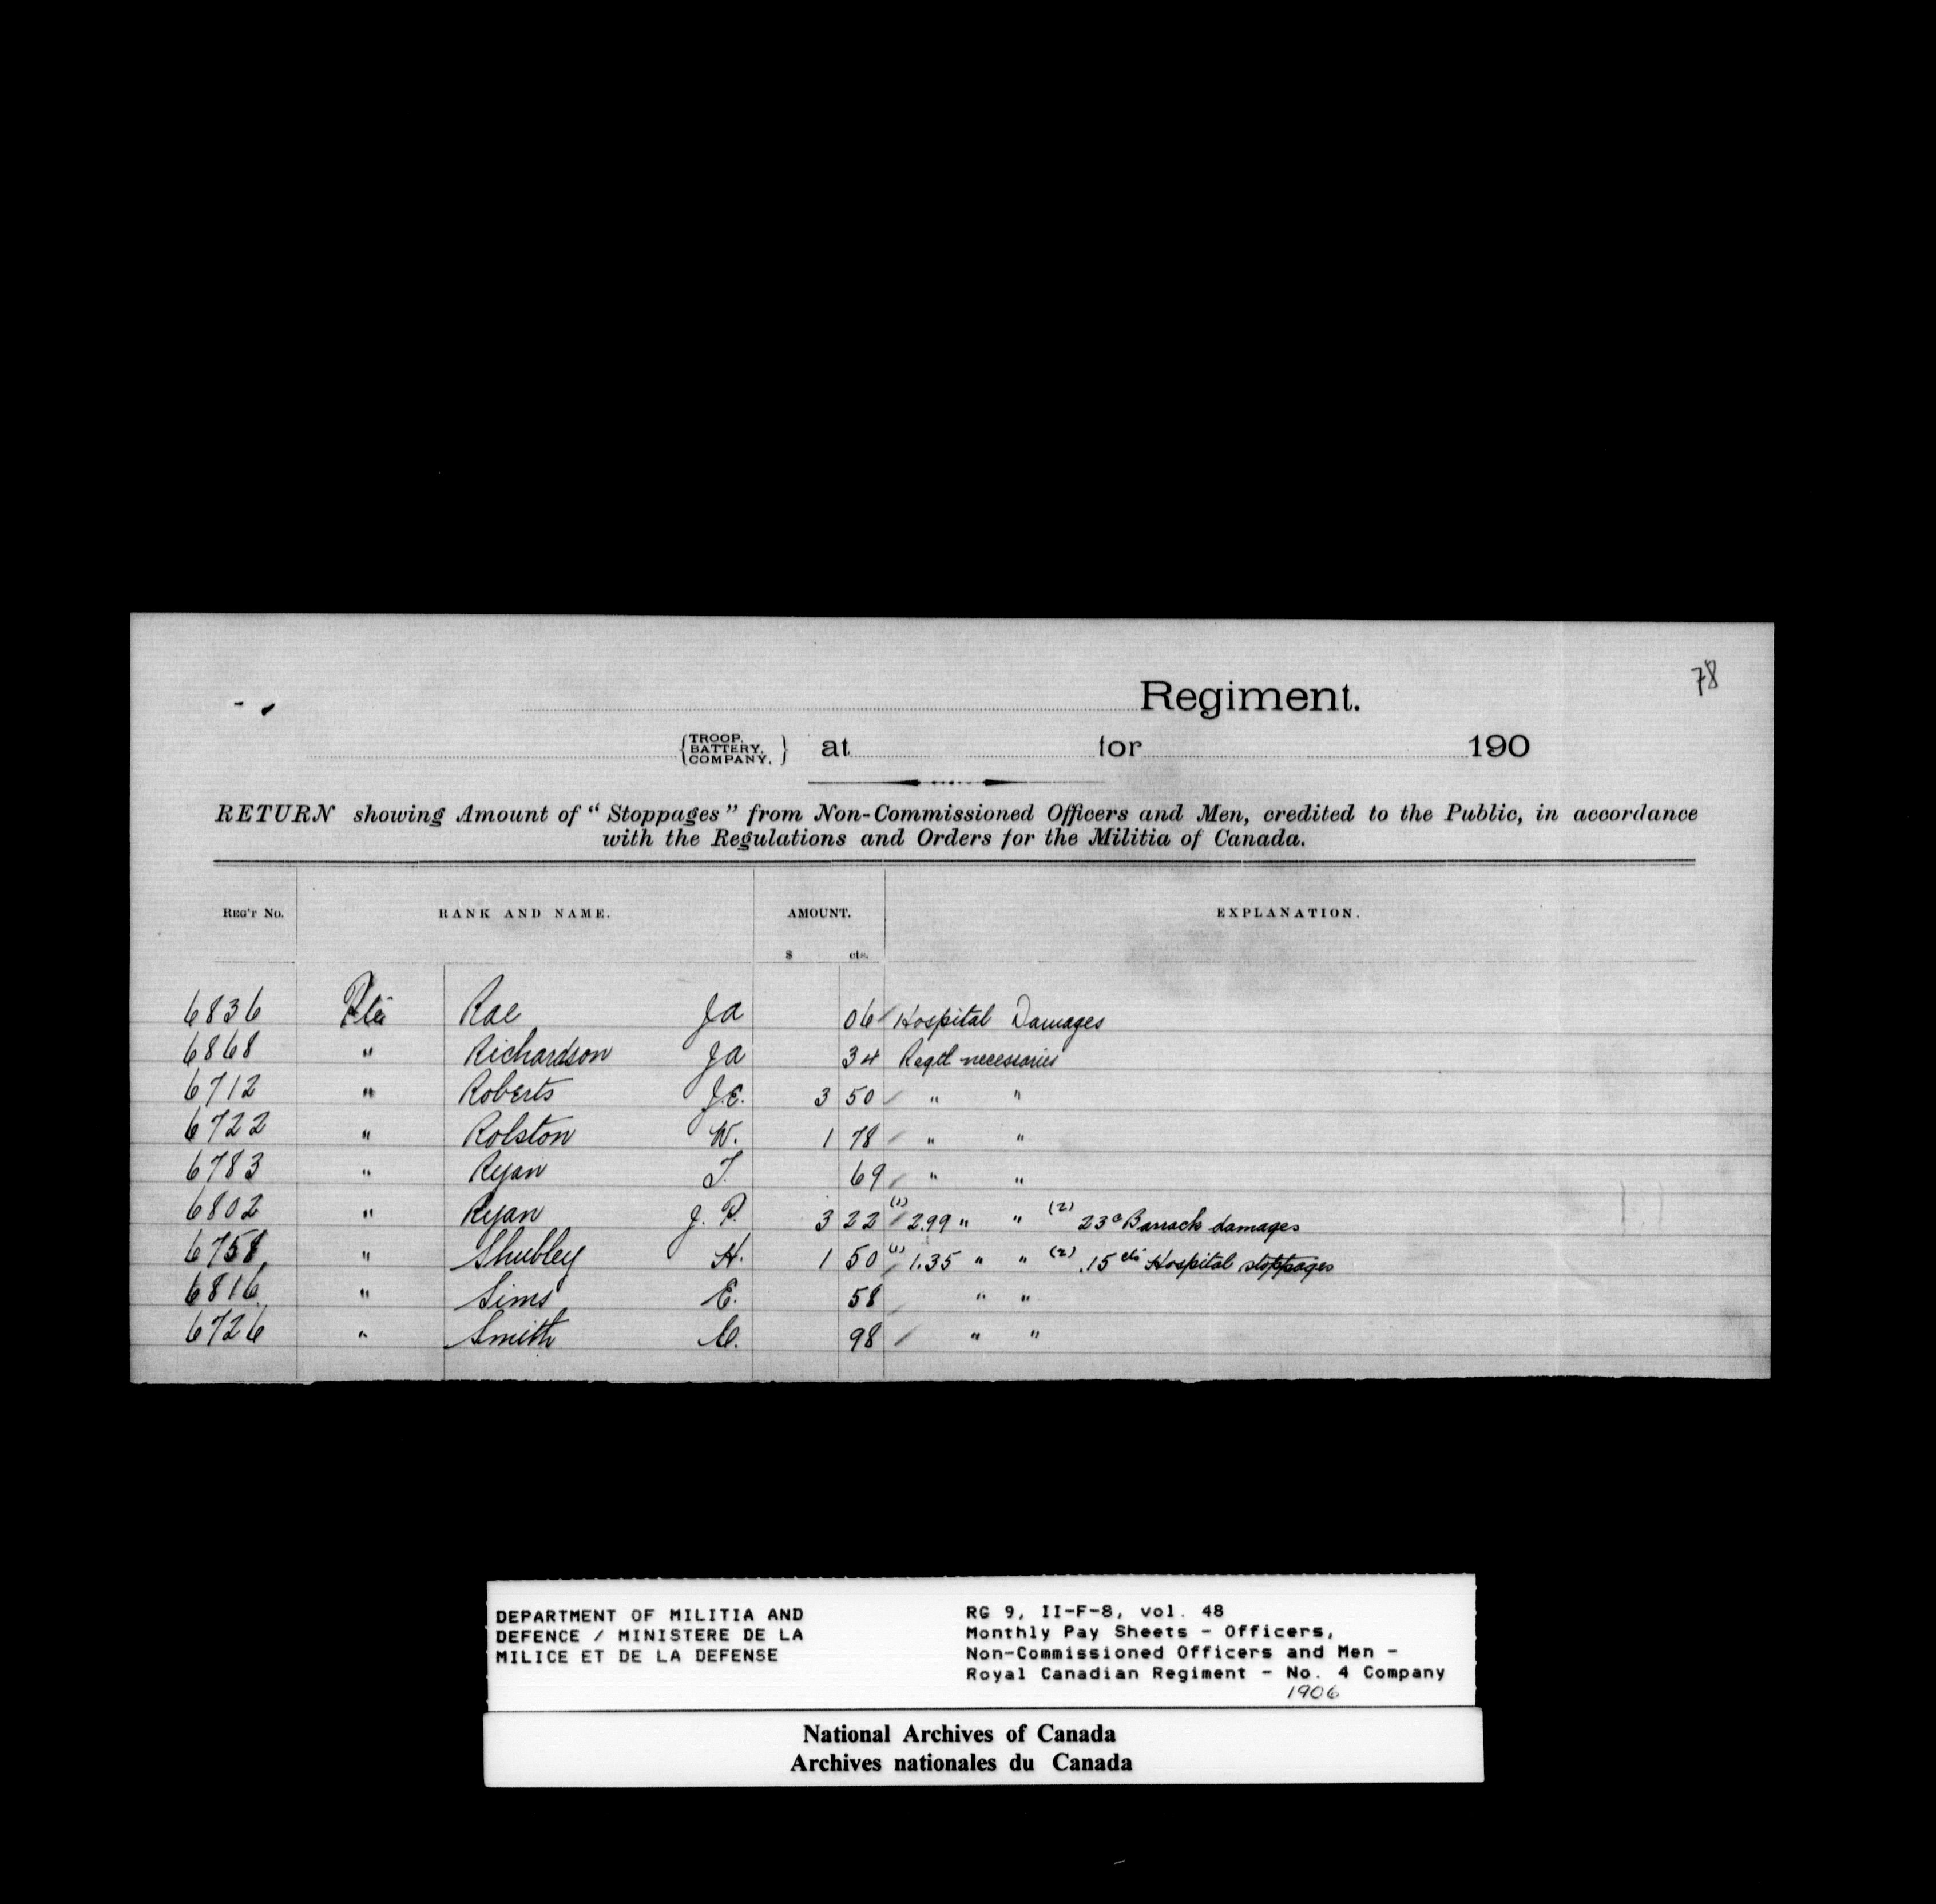 78
Regiment.
{TROOP, BATTERY, COMPANY,} at for 190
RETURN showing Amount of "Stoppages" from Non-Commissioned Officers and Men, credited to the Public, in accordance
with the Regulations and Orders for the Militia of Canada.
REG'T No. RANK AND NAME. AMOUNT. EXPLANATION.
$ cts.
6836 Pte Rae J A 06 Hospital Damages
6868 " Richardson J A 34 Regtl necessaries
6712 " Roberts J.E. 3 50 " "
6722 " Rolston W. 1 78 " "
6783 " Ryan T. 69 " "
6802 " Ryan J. P. 3 22 (1) 2.99 " " (2) 23c Barrack damages
6758 " Shubley H. 1 50 (1) 1.35 " " (2) .15 cts Hospital stoppages
6816 " Sims E. 58 " "
6726 " Smith C. 98 " "
DEPARTMENT OF MILITIA AND
DEFENCE / MINISTERE DE LA
MILICE ET DE LA DEFENSE
RG 9, II-F-8, vol. 48
Monthly Pay Sheets - Officers,
Non-Commissioned Officers and Men -
Royal Canadian Regiment - No. 4 Company
1906
National Archives of Canada
Archives nationales du Canada